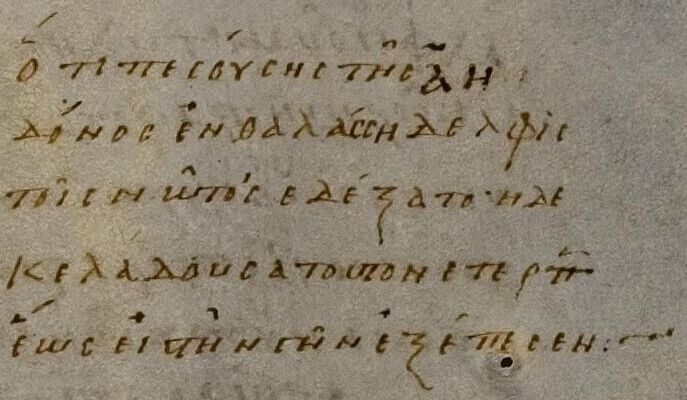 ὅτι πεσούσης τῆς ἀη
δόνος ἐν θαλάσσῃ δελφὶς
τοῖς νώτοις ἐδέξατο· ἡ δὲ
κελαδοῦσα τὸ υπον ετερπ
ἕως εἰς τὴν γῆν ἐξέπεσεν: